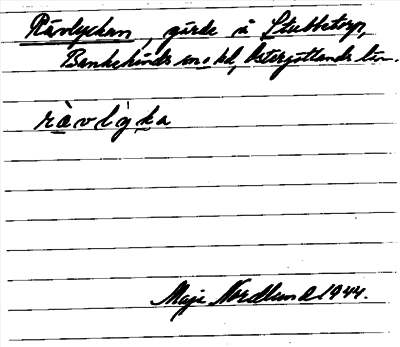 Rävlyckan, gärde å Stubbetorp,
Bankekinds sn o hd, Östergötlands län.
rȁvlỳka
Maja Nordlund 1944.